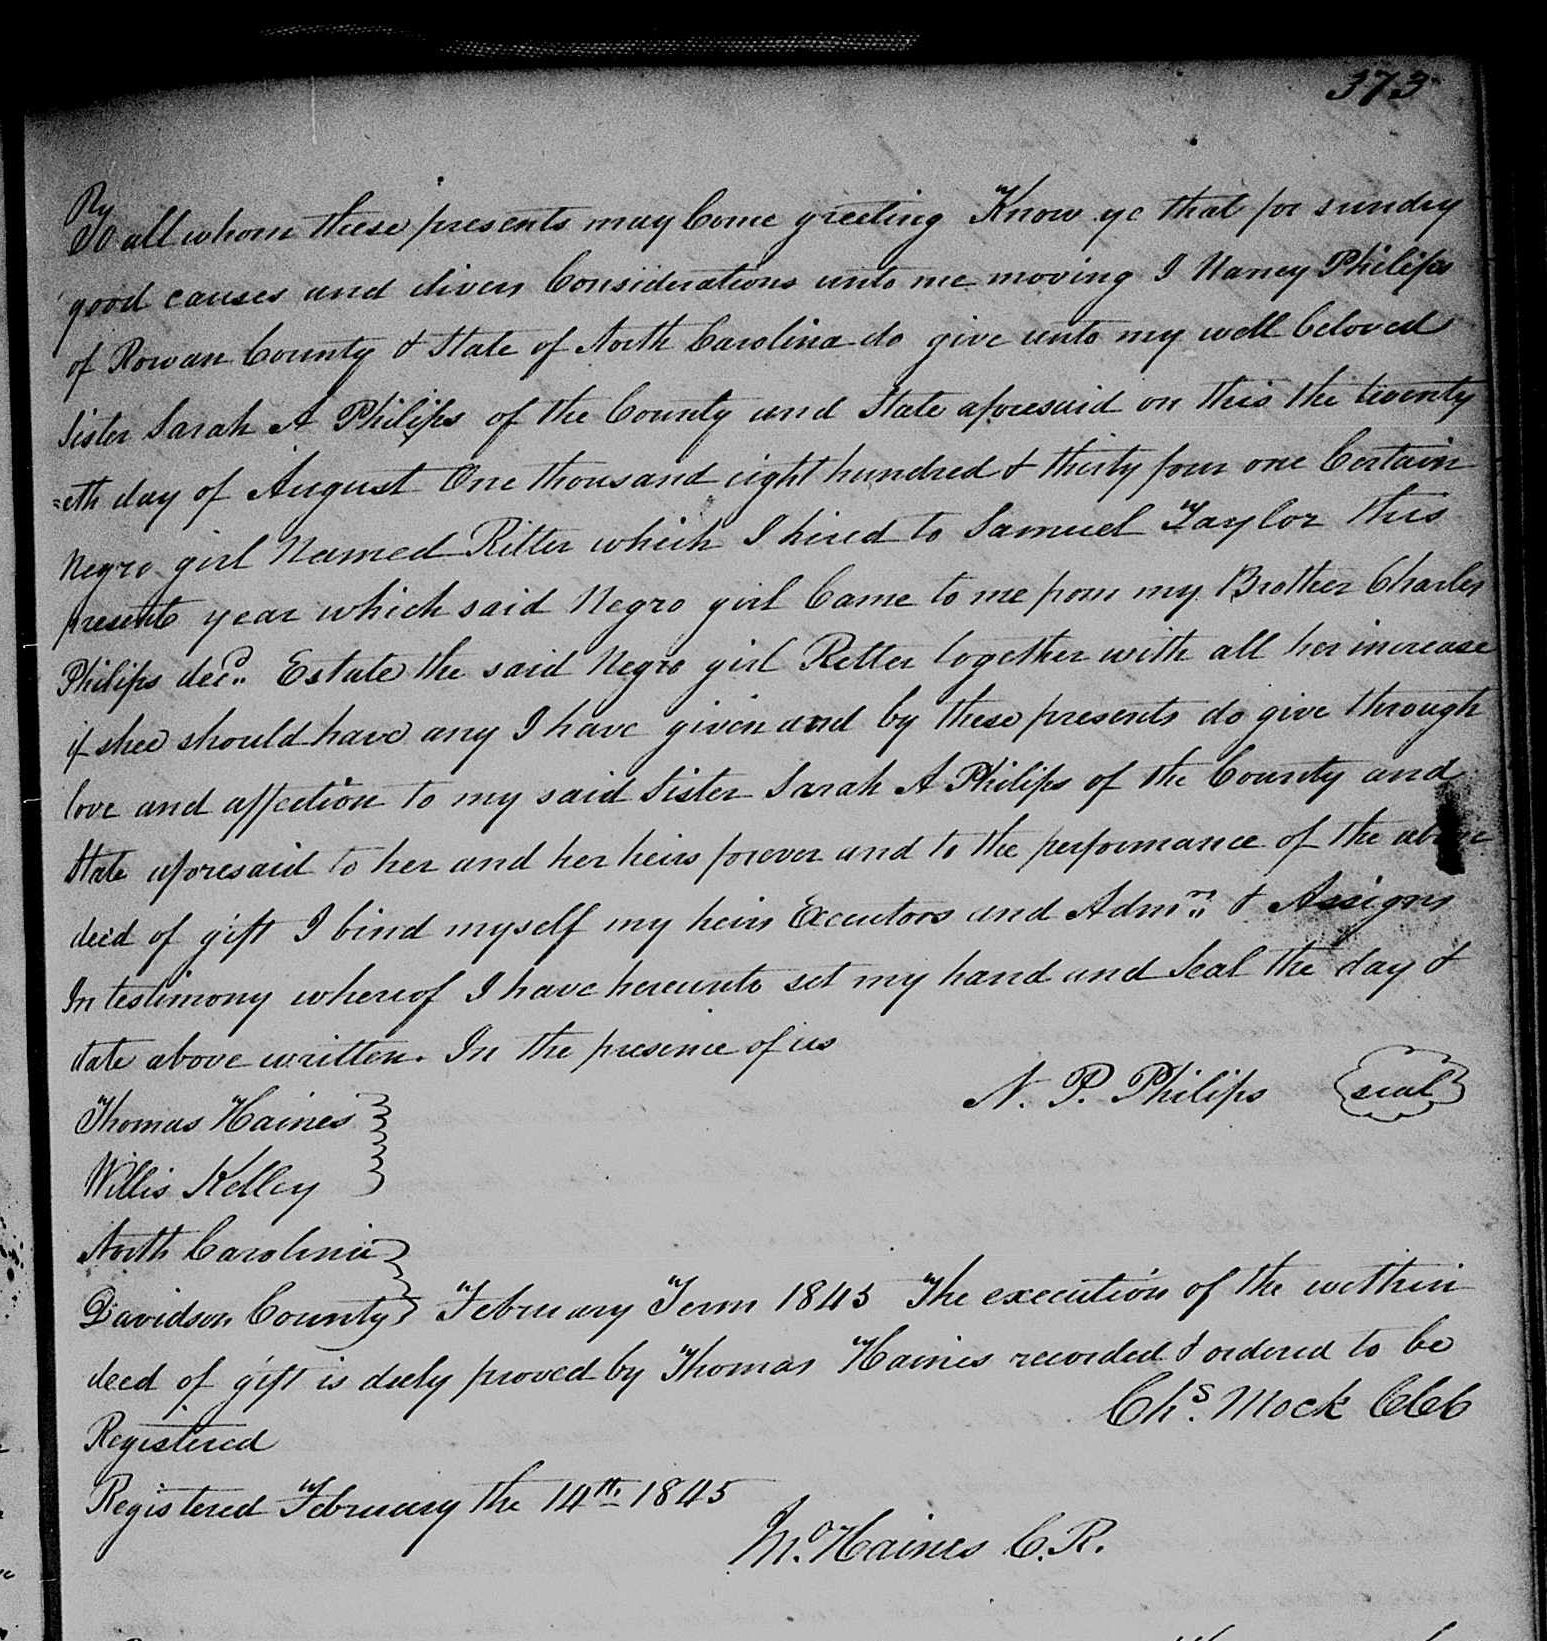 373
Ry
To all whom these presents may Come greeting Know ye that for sundry
good causes and divers Considerations unto me moving I Nancy Philips
of Rowan County & State of North Carolina do give unto my well beloved
Sister Sarah A Philips of the County and State aforesaid on this the twenty
=eth day of August One thousand eight hundred & thirty four one Certain
Negro girl Named Ritter which I hired to Samuel Taylor this
present year which said Negro girl Came to me from my Brother Charles
Philips decd. Estate the said Negro girl Retter together with all her increase
if shee should have any I have given and by these presents do give through
love and affection to my said Sister Sarah A Philips of the County and
State aforesaid to her and her heirs forever and to the performance of the above
deed of gift I bind myself my heirs Executors and Admrs. & Assigns
In testimony whereof I have hereunto set my hand and Seal the day &
date above written. In the presence of us
N. P. Philips seal
Thomas Haines
Willis Kelley
North Carolina
Davidson County February Term 1845 The execution of the within
deed of gift is duly proved by Thomas Haines recorded & ordered to be
Registered
Chs. Mock CCC
Registered February the 14th 1845
Haines C.R.